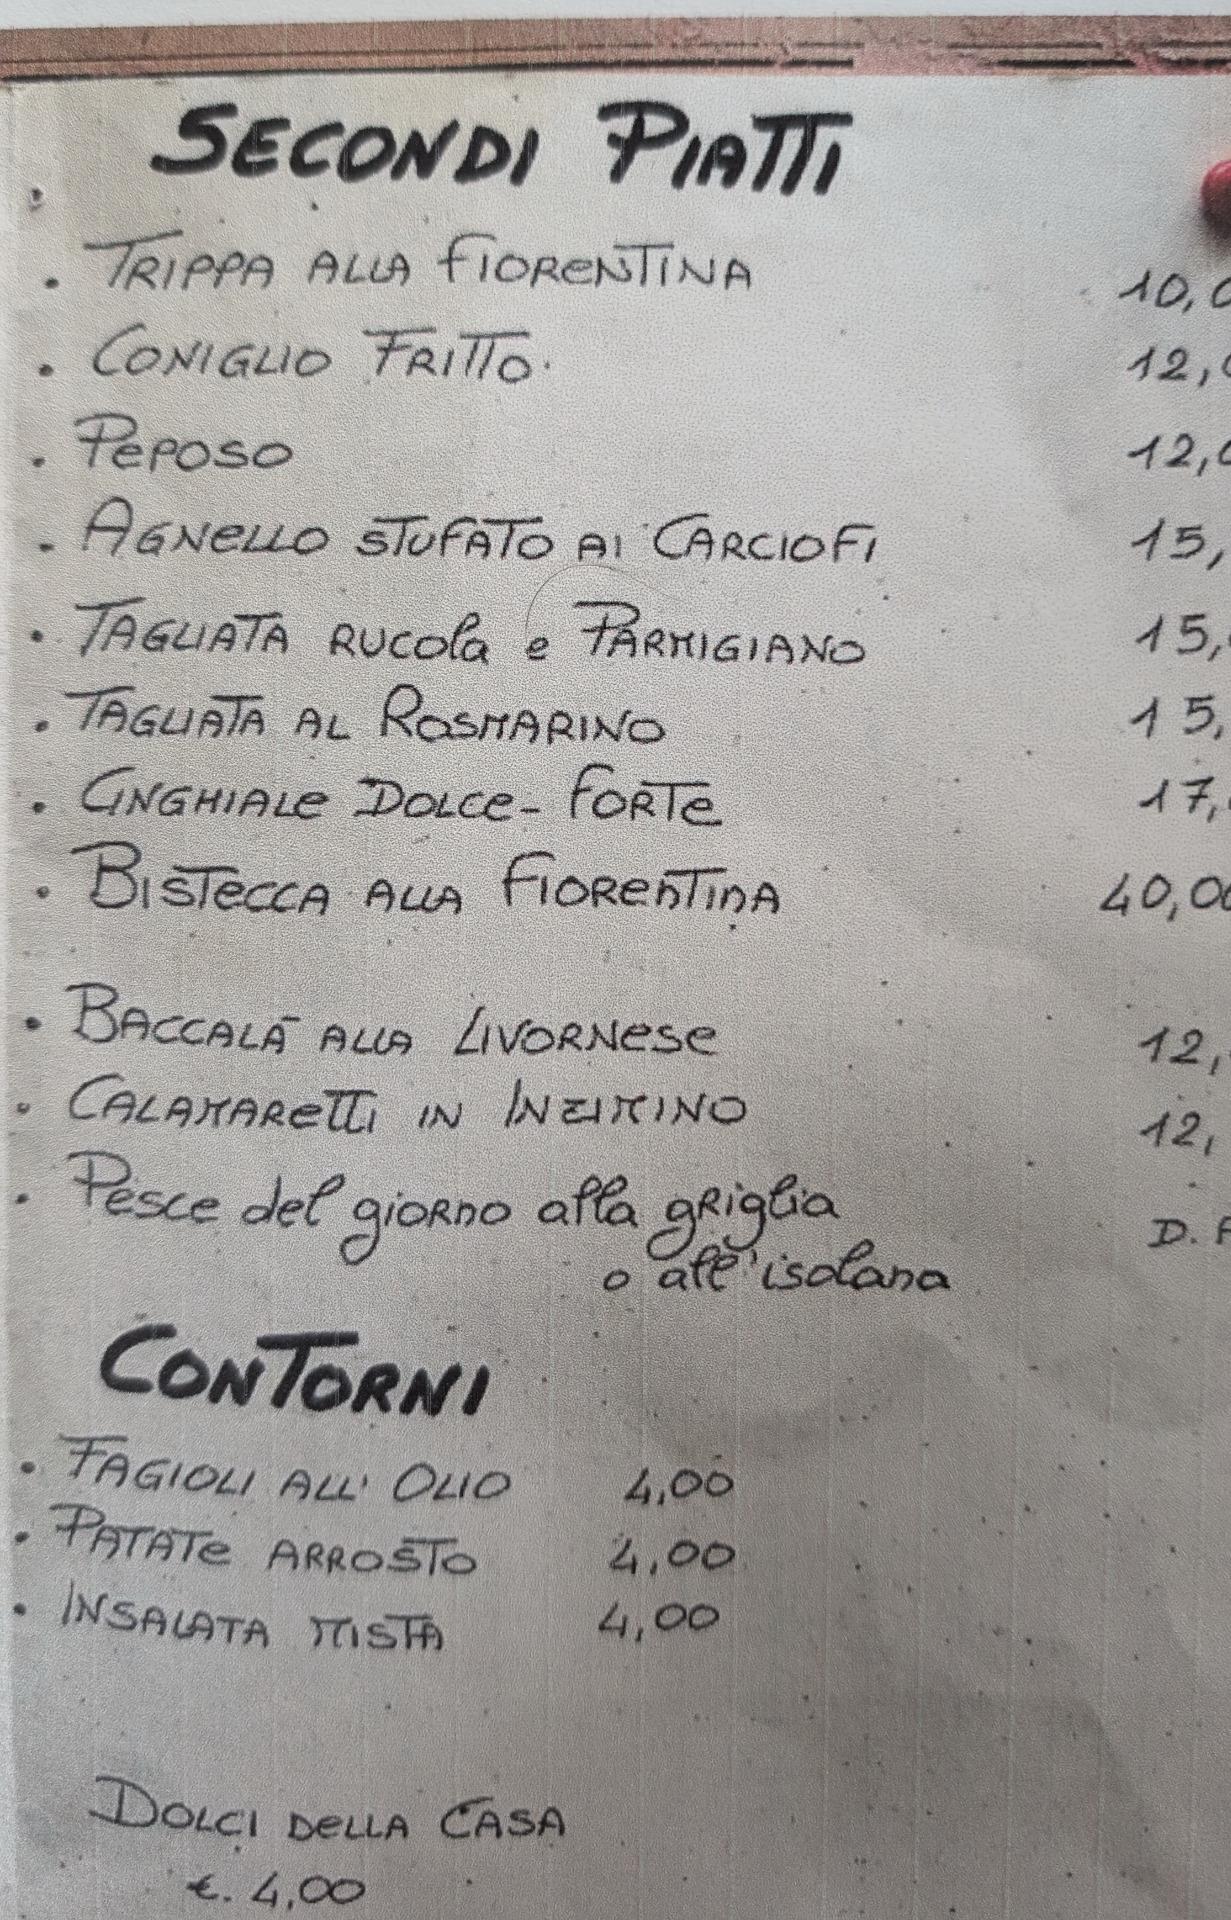 SECONDI PIATTI
. TRIPPA ALLA FIORENTINA 10,0
. CONIGLIO FRITTO. 12,0
. PEPOSO 12,0
. AGNELLO STUFATO AI CARCIOFI 15,
. TAGLIATA RUCOLA e PARMIGIANO 15,
. TAGLIATA AL ROSMARINO 15,
. CINGHIALE DOLCE-FORTE 17,
. BISTECCA ALLA FIORENTINA 40,00
. BACCALÀ ALLA LIVORNESE 12,
. CALAMARETTI IN INZIMINO 12,
. Pesce del giorno alla griglia D.
o all'isolana
CONTORNI
. FAGIOLI ALL' OLIO 4,00
. PATATE ARROSTO 4,00
. INSALATA MISTA 4,00
DOLCI DELLA CASA
€. 4,00